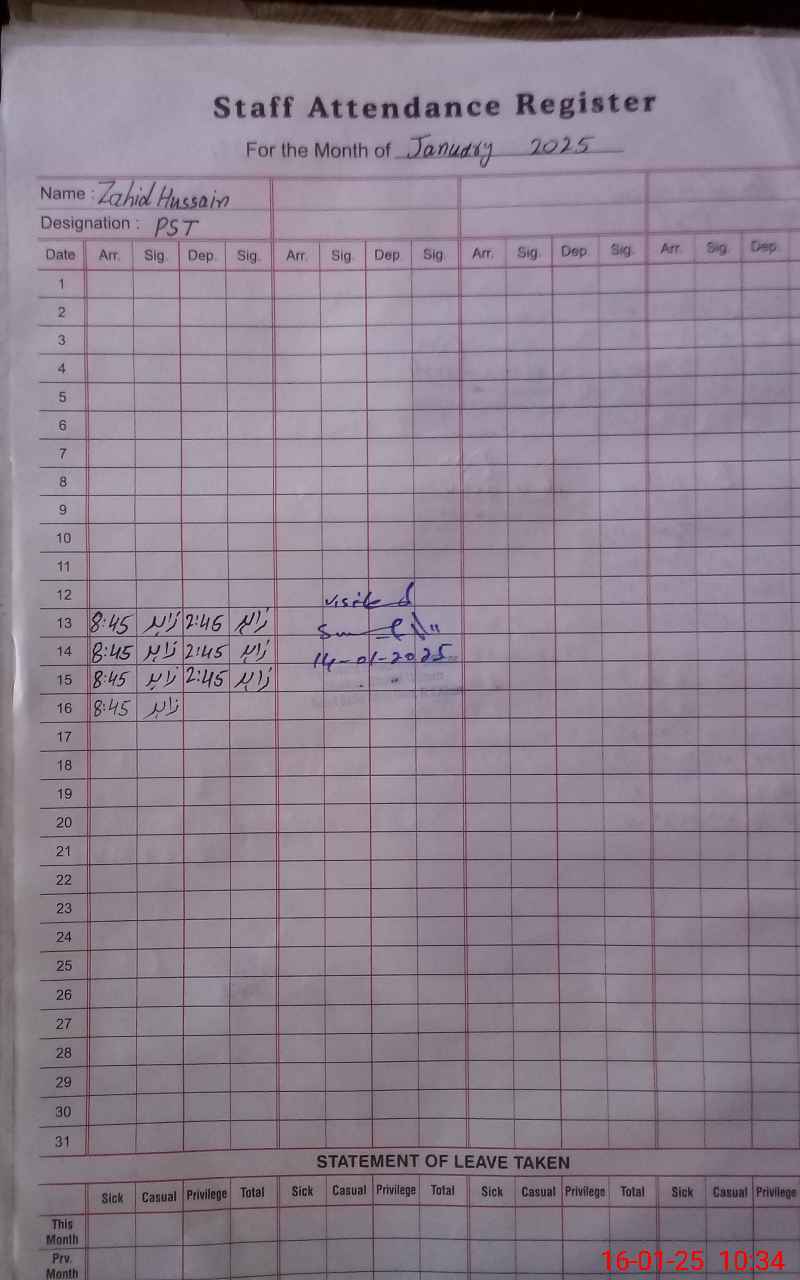 Staff Attendance Register
For the Month of January 2025
Name : Zahid Hussain
Designation : PST
Date Arr. Sig. Dep. Sig. Arr. Sig. Dep. Sig. Arr. Sig. Dep. Sig. Arr. Sig. Dep.
1
2
3
4
5
6
7
8
9
10
11
12 visited
13 8:45 زاہد 2:45 زاہد
14 8:45 زاہد 2:45 زاہد 14-01-2025
15 8:45 زاہد 2:45 زاہد
16 8:45 زاہد
17
18
19
20
21
22
23
24
25
26
27
28
29
30
31
STATEMENT OF LEAVE TAKEN
Sick Casual Privilege Total Sick Casual Privilege Total Sick Casual Privilege Total Sick Casual Privilege
This Month
Prv. Month
16-01-25 10:34